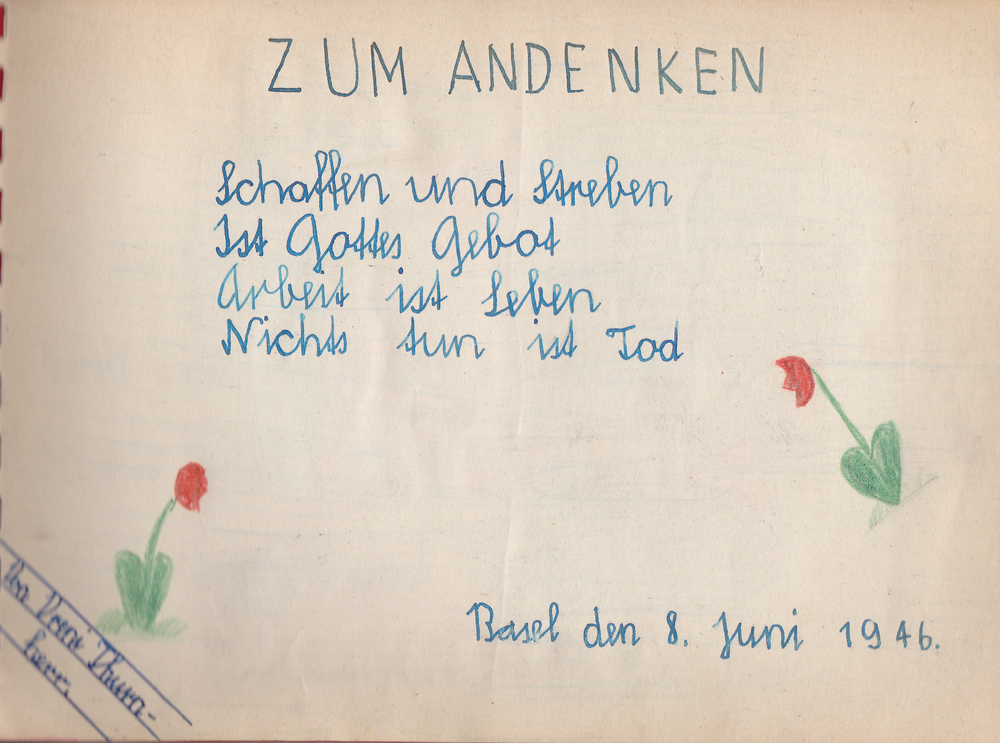 ZUM ANDENKEN
Schaffen und Streben
Ist Gottes Gebot
Arbeit ist Leben
Nichts tun ist Tod
Basel den 8. Juni 1946.
Von Vreni Thura-
herr.